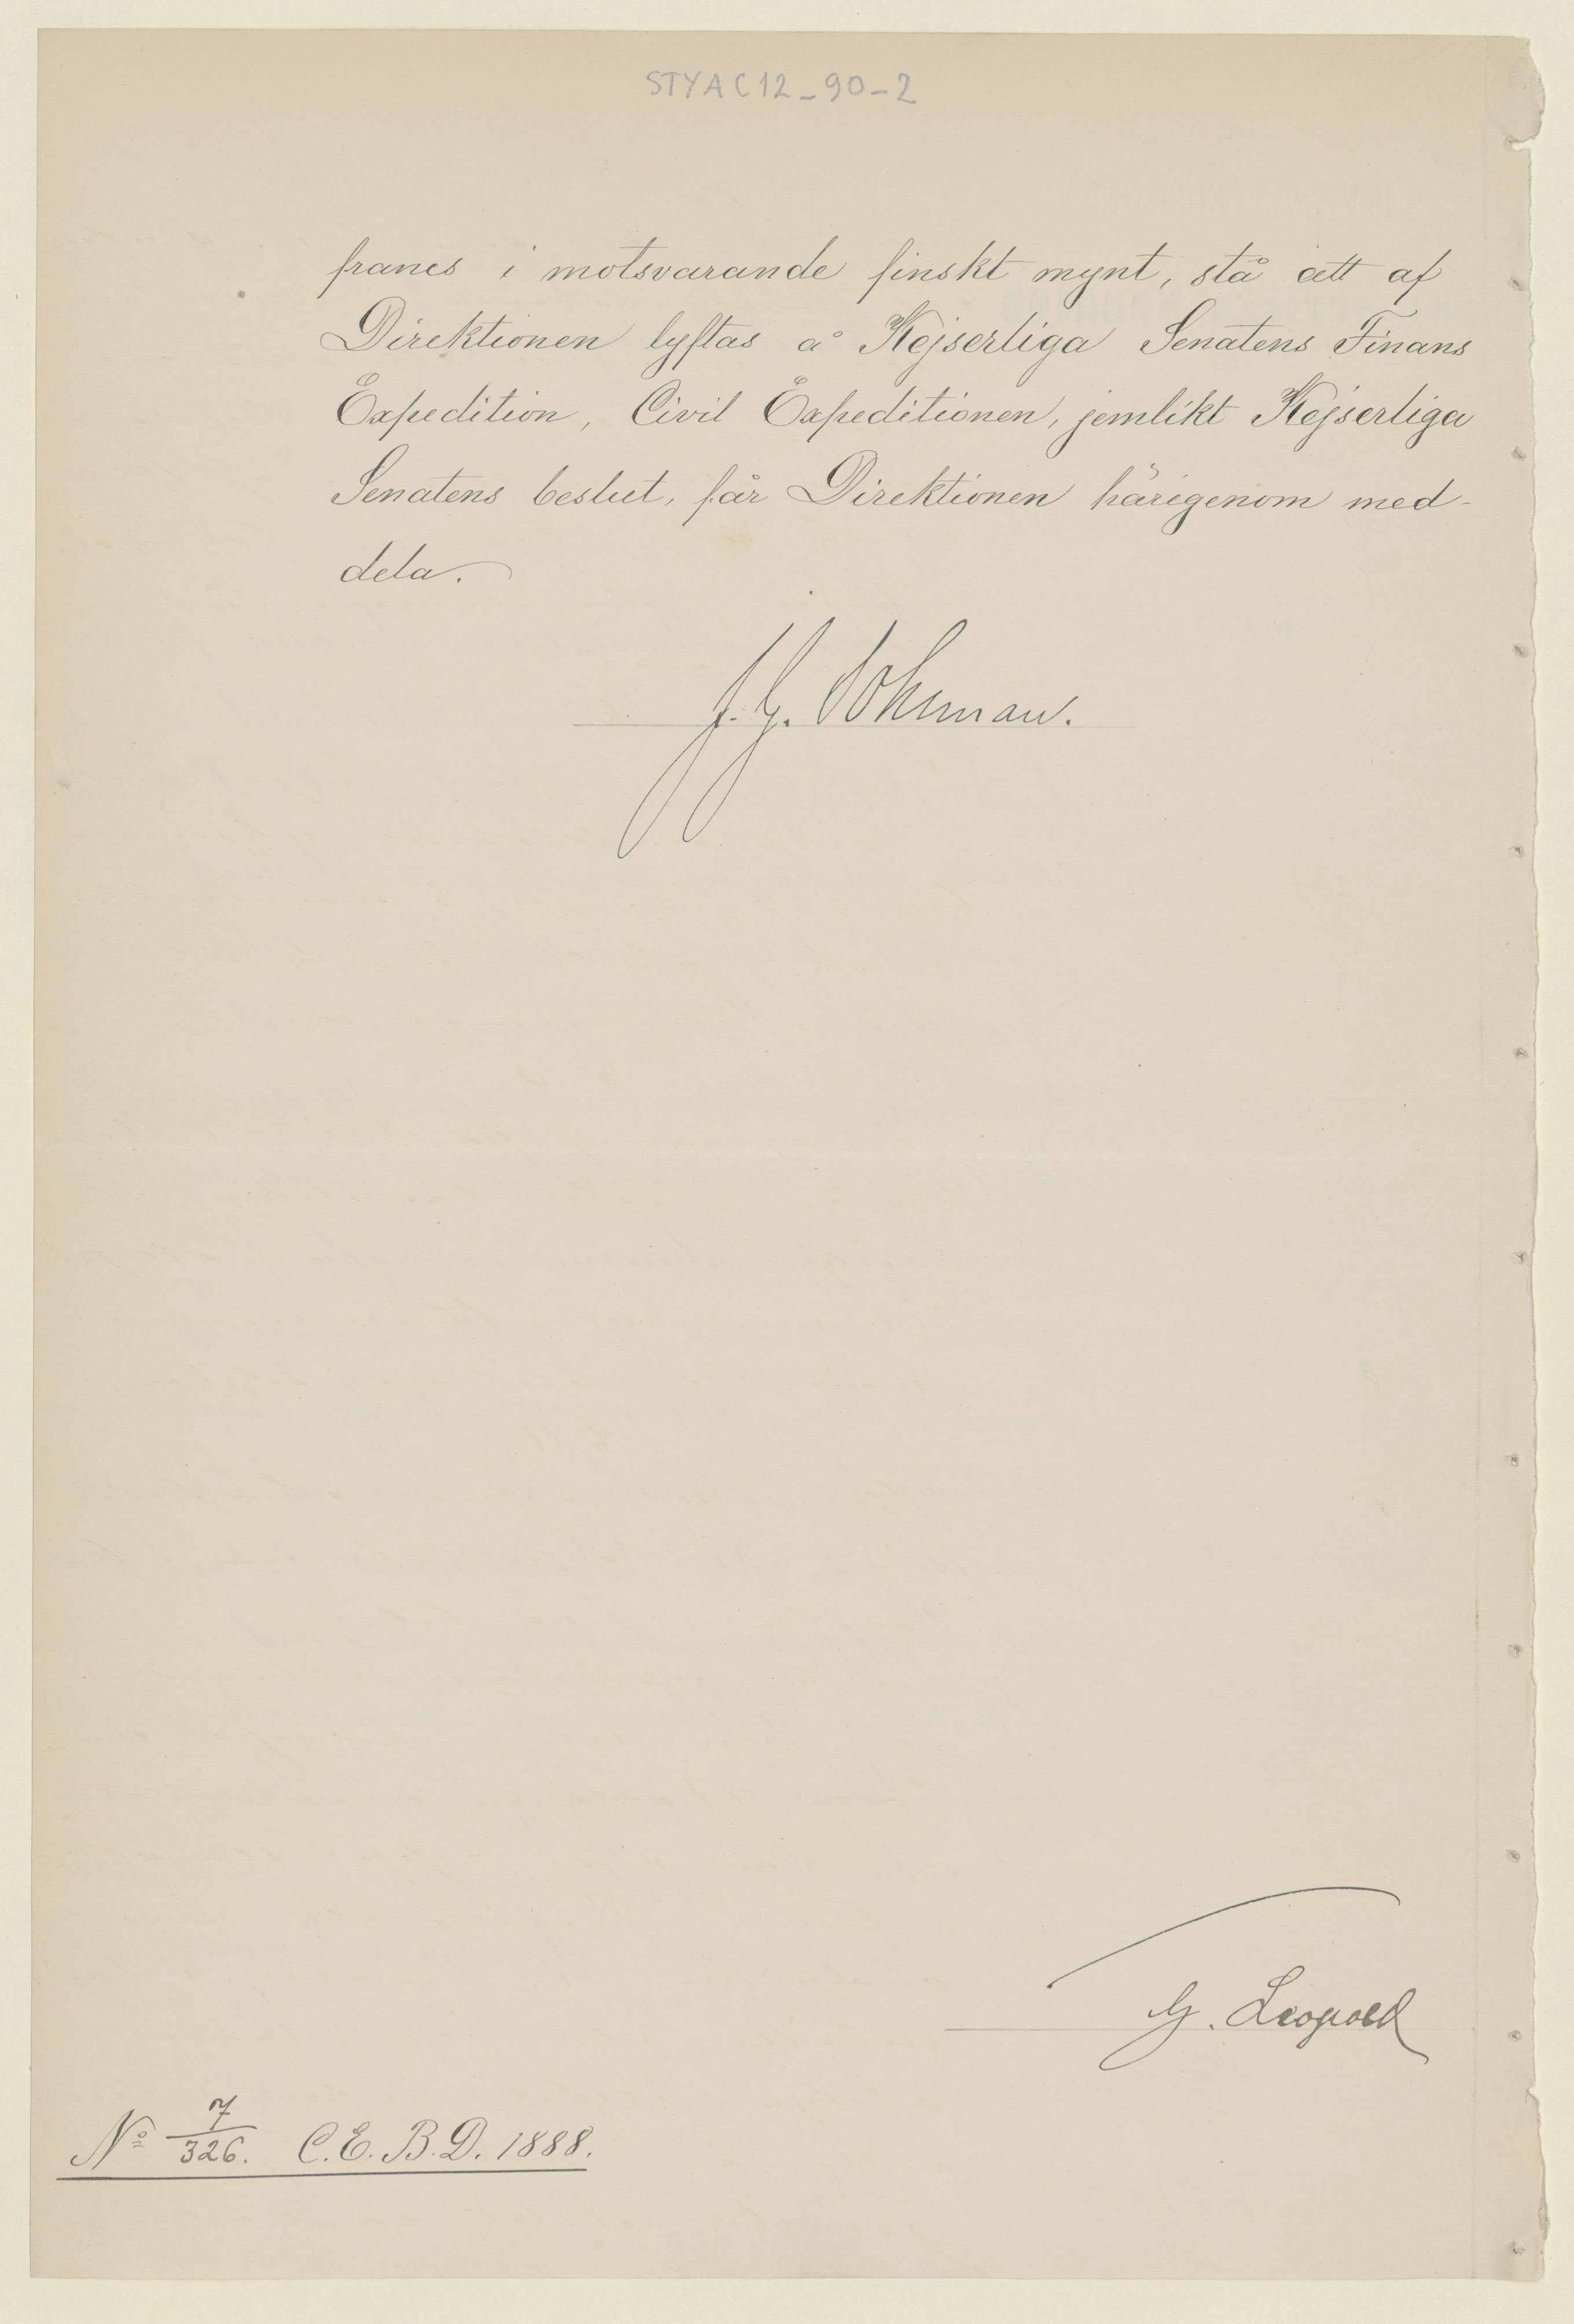 STYAC12_90_2
francs i motsvarande finskt mynt, stå att af
Direktionen lyftas å Kejserliga Senatens Finans
Expedition, Civil Expeditionen, jemlikt Kejserliga
Senatens beslut, får Direktionen härigenom med-
dela.
J. G. Sohlman.
G. Leopold
Nº 7/326. C. E. B. D. 1888.